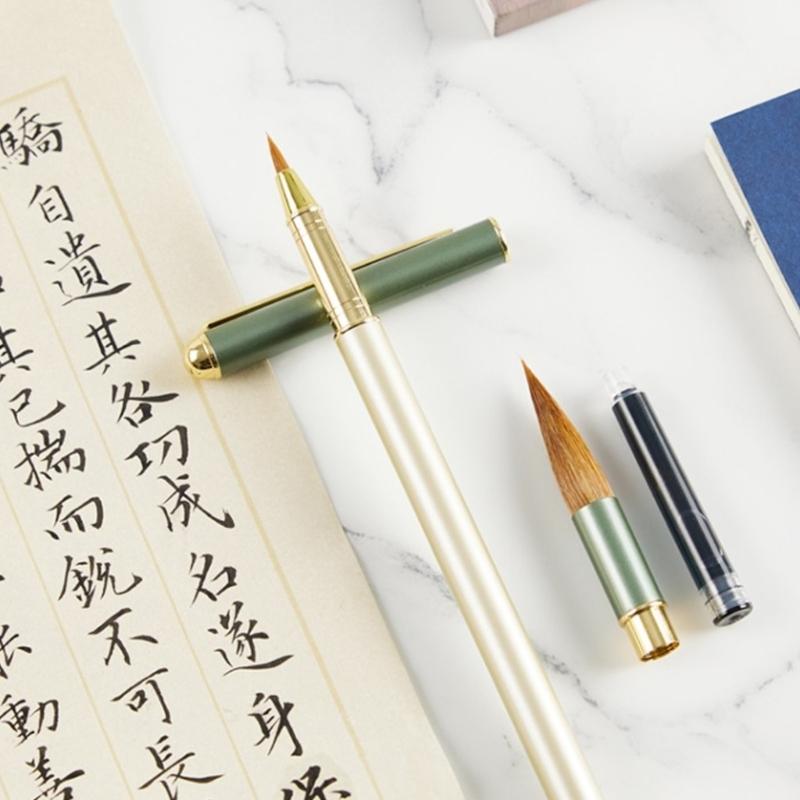 驕自遺其各功成名遂身
其已揣而銳不可長
動善